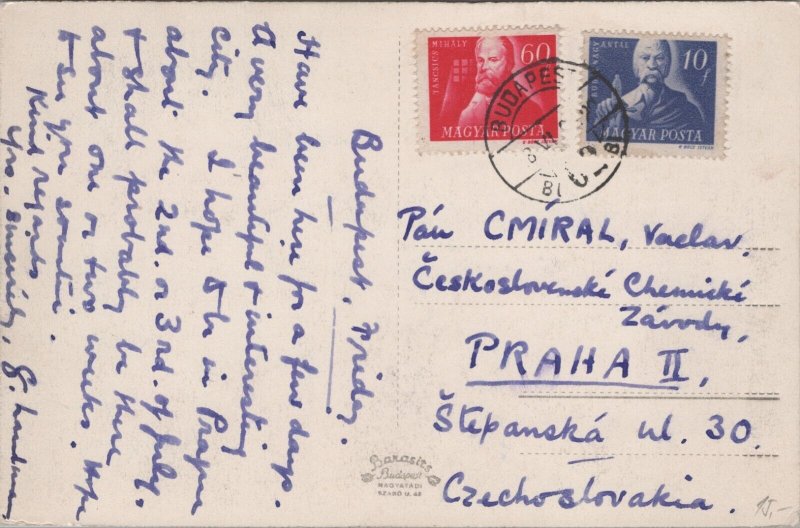 Budapest, Friday.
Have been here for a few days.
A very beautiful + interesting
city. I hope to be in Prague
about the 2nd. or 3rd. of July.
+ shall probably be there
about one or two weeks. Hope
to see you
Kind regards
Yrs. sincerely, G.
TÁNCSICS MIHÁLY
60 f
MAGYAR POSTA
NAGY ANTAL
10 f
MAGYAR POSTA
BUDAPEST
Pán CMÍRAL, Vaclav.
Československé Chemické
Závody,
PRAHA II,
Štěpanská ul. 30.
Czechoslovakia.
Barasits
Budapest
NAGYATÁDI
SZABÓ U. 43
15,-